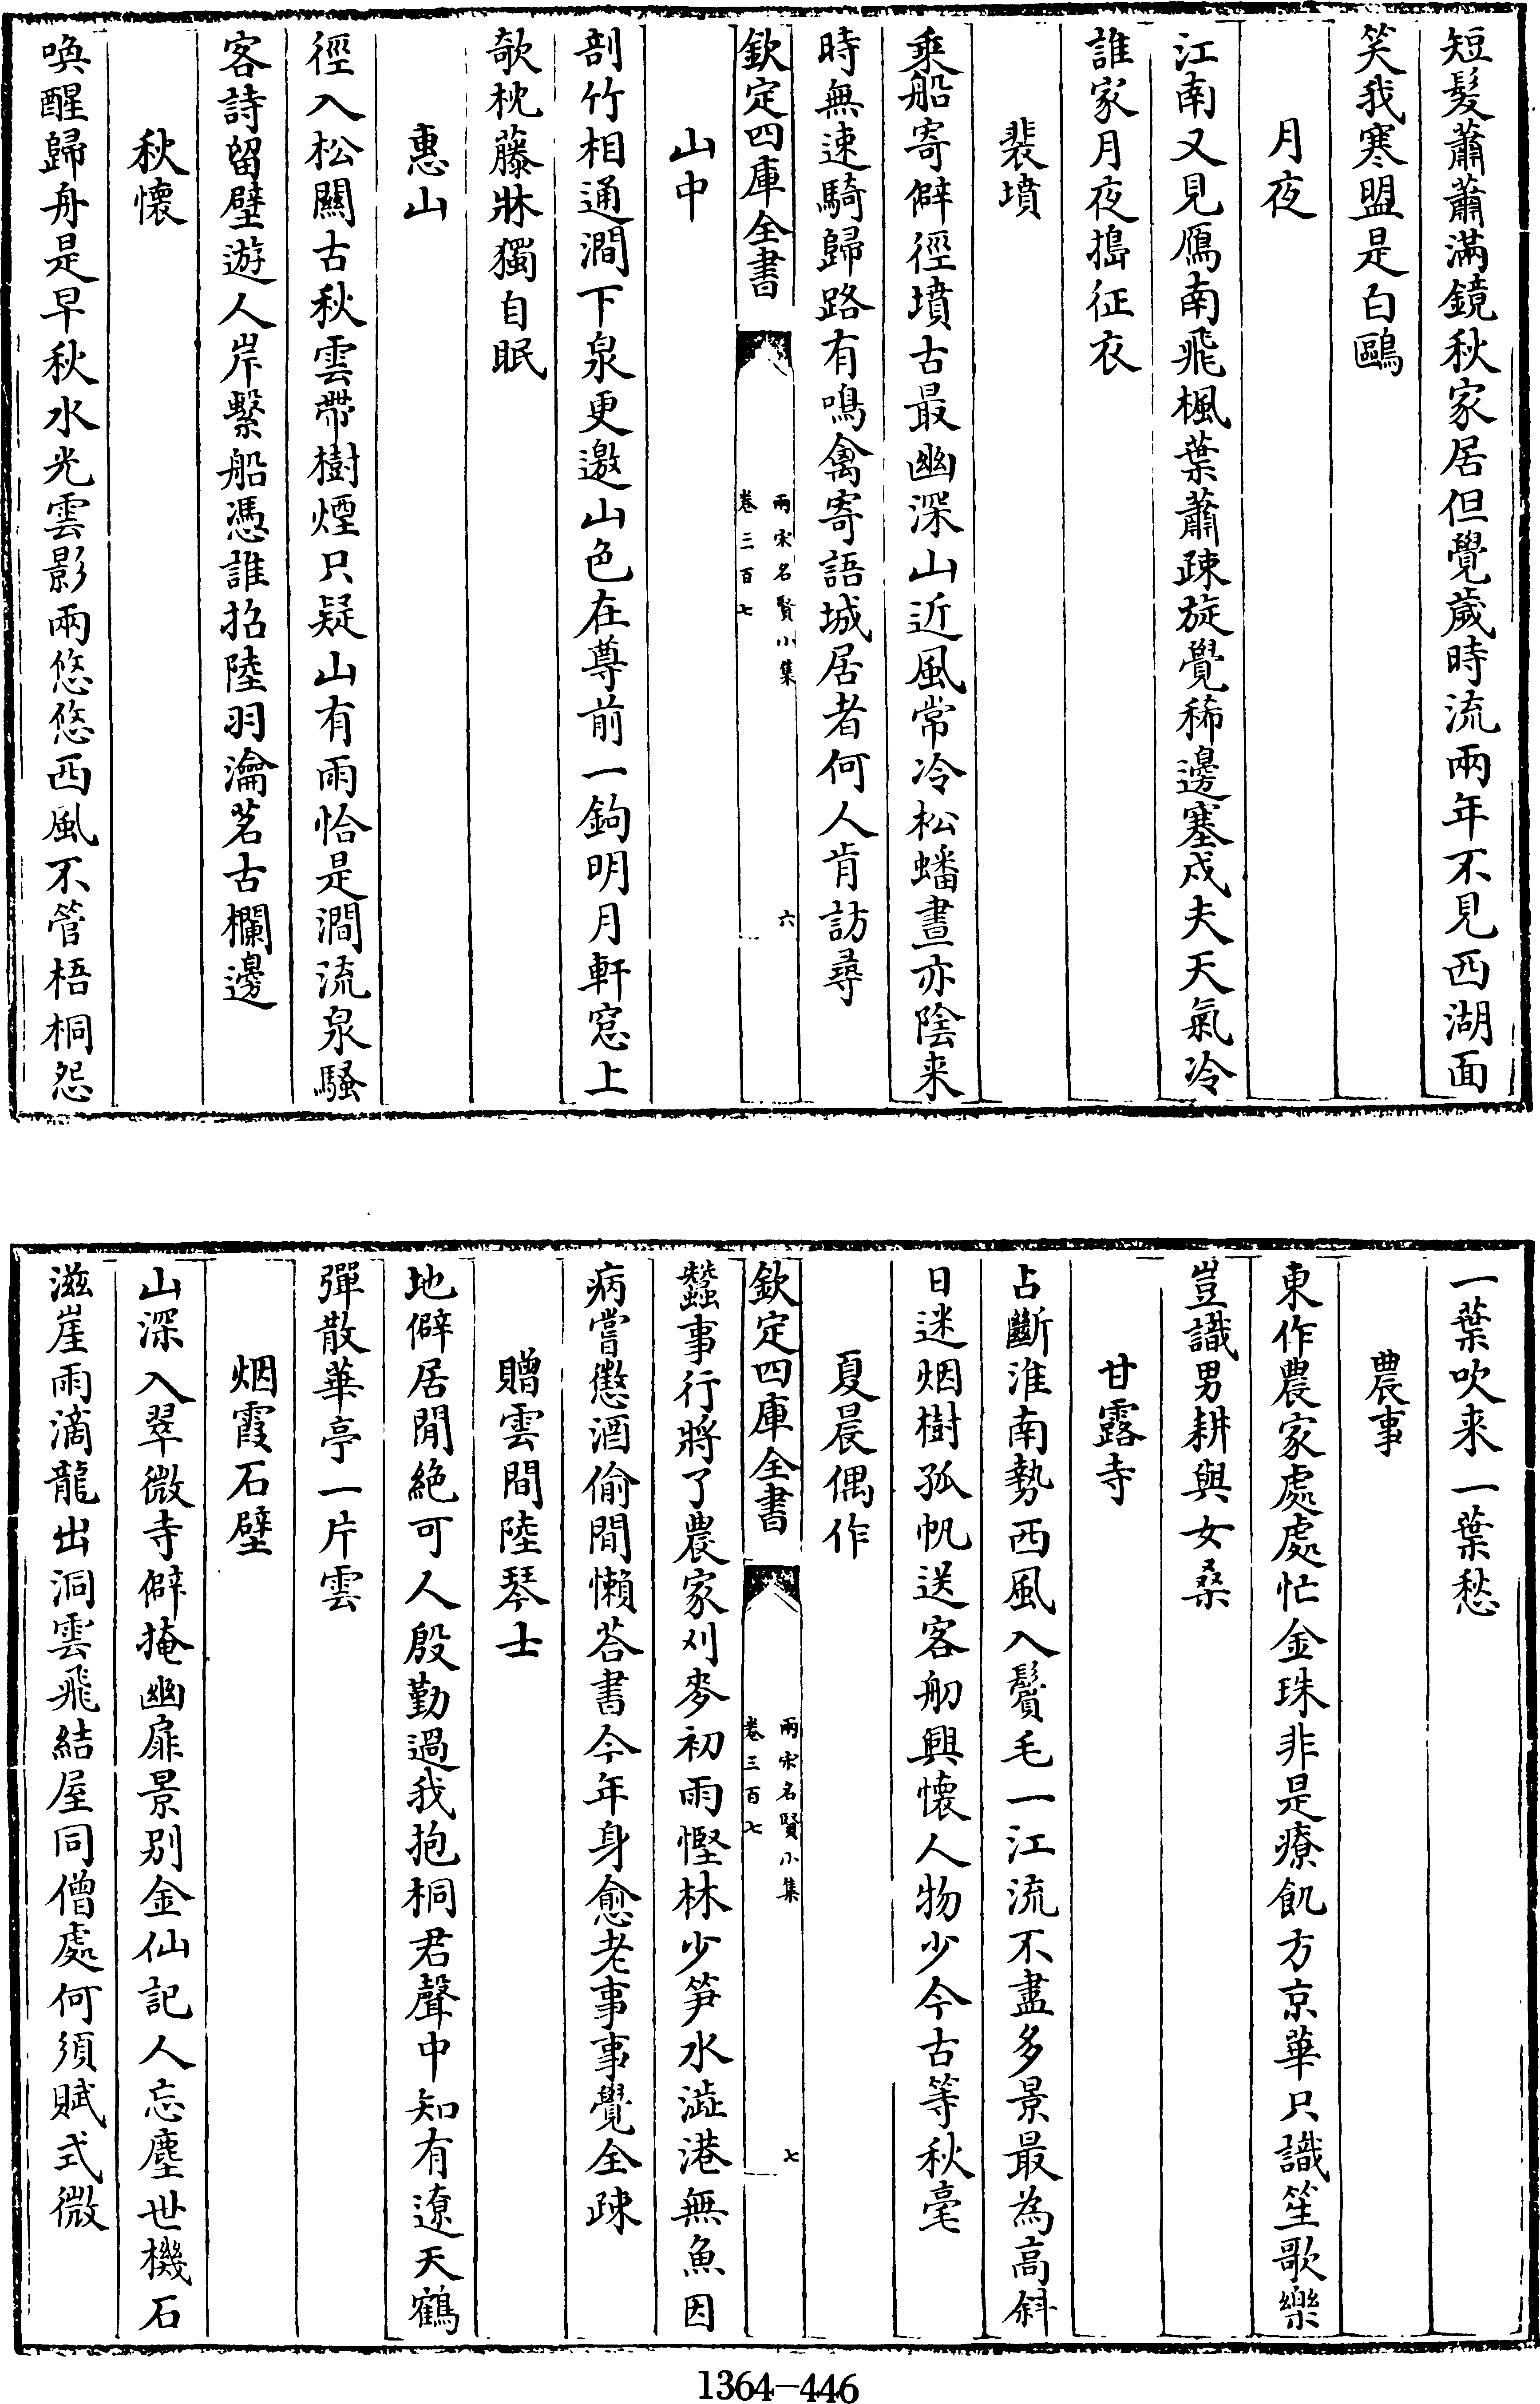 短髮蕭蕭滿鏡秋家居但覺歲時流兩年不見西湖面
笑我寒盟是白鷗
月夜
江南又見鴈南飛楓葉蕭疎旋覺稀邊塞戍夫天氣冷
誰家月夜搗征衣
裴墳
乘船寄僻徑墳古最幽深山近風常冷松蟠晝亦陰来
時無速騎歸路有鳴禽寄語城居者何人肯訪尋
欽定四庫全書
兩宋名賢小集
卷三百七
六
山中
剖竹相通澗下泉更邀山色在尊前一鉤明月軒窓上
欹枕藤牀獨自眠
惠山
徑入松關古秋雲帶樹煙只疑山有雨恰是澗流泉騷
客詩留壁遊人岸繫船憑誰招陸羽瀹茗古欄邊
秋懷
喚醒歸舟是早秋水光雲影兩悠悠西風不管梧桐怨
一葉吹来一葉愁
農事
東作農家處處忙金珠非是療飢方京華只識笙歌樂
豈識男耕與女桑
甘露寺
占斷淮南勢西風入鬢毛一江流不盡多景最為高斜
日迷烟樹孤帆送客舠興懷人物少今古等秋毫
夏晨偶作
欽定四庫全書
兩宋名賢小集
卷三百七
七
蠶事行將了農家刈麥初雨慳林少笋水澁港無魚因
病嘗懲酒偷閒懶荅書今年身愈老事事覺全疎
贈雲間陸琴士
地僻居閒絶可人殷勤過我抱桐君聲中知有遼天鶴
彈散華亭一片雲
烟霞石壁
山深入翠微寺僻掩幽扉景別金仙記人忘塵世機石
滋崖雨滴龍出洞雲飛結屋同僧處何須賦式微
1364-446